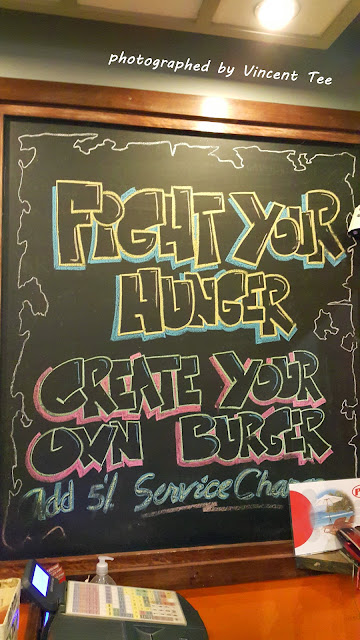 photographed by Vincent Tee
FiGHT YOUR
HUNGER
CREATE YOUR
OWN BURGER
Add 5% Service